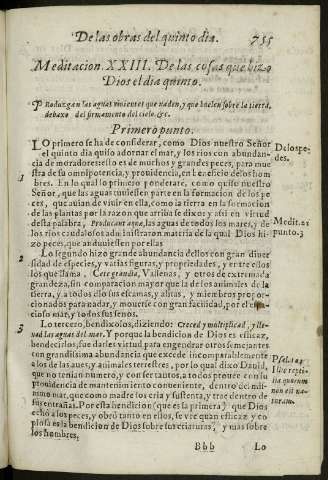 De las obras del quinto dia. 755
Meditacion. XXIII. De las cosas que hizo
Dios el dia quinto.
PRoduzgan las aguas vivientes que naden, y que buelen sobre la tierra,
debaxo del firmamento del cielo. &c.
Primero punto.
LO primero se ha de considerar, como Dios nuestro Señor
el quinto dia quiso adornar el mar, y los rios con abundan-
cia de moradores: esto es de muchos y grandes peces, para mue
stra de su omnipotencia, y providencia, en beneficio de los hom
bres. En lo qual lo primero ponderare, como quiso nuestro
Señor, que las aguas tuviessen parte en la formacion de los pe
ces, que avian de vivir en ella, como la tierra en la formacion
de las plantas por la razon que arriba se dixo: y assi en virtud
desta palabra, Producant aquæ, las aguas de todos los mares, y de
los rios caudalosos administraron materia de la qual Dios hi-
zo peces, que anduviessen por ellas
De los pe-
des.
1
Medit. 21
punto. 3
2
Lo segundo hizo grande abundancia dellos con gran diver
sidad de especies, y varias figuras, y propriedades, y entre ellos
los que llama, Cete grandia, Vallenas, y otros de extremada
grandeza, sin comparacion mayor que la de los animales de la
tierra, y a todos dio sus escamas, y aletas, y miembros propor-
cionados para nadar, y moverse con gran facilidad, por el espa-
cioso mar, y todos sus senos.
3
Lo tercero, bendixolos, diziendo: Creced y multiplicad, y lle-
nad las aguas del mar. Y porque la bendicion de Dios es eficaz,
bendecirlos, fue darles virtud para engendrar otros semejantes
con grandissima abundancia que excede incomparablemente
a los de las aves, y animales terrestres, por lo qual dixo David,
que no tenian numero, y con ser tantos, a todos provee con su
providencia de mantenimiento conveniente, dentro del mis-
mo mar, que como madre los cria y sustenta, y trae dentro de
sus entrañas. Por esta bendicion (que es la primera) que Dios
echó a los peces, y obró tanto en ellos, se vee quan eficaz y co
piosa es la bendicion de Dios sobre sus criaturas, y mas sobre
los hombres;
Psal. 103
Illic repti-
lia quorum
non est nu-
Bbb Lo